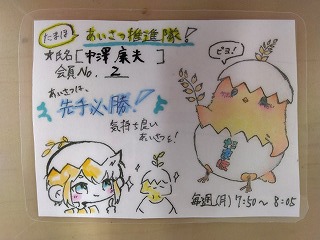 たまほ あいさつ推進隊!
★氏名[中澤康夫]
会員No. 2
ピヨ!
あいさつは、
先手必勝!
気持ち良い
あいさつを!
毎週(月) 7:50〜8:05